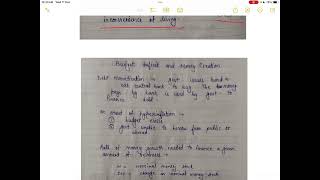 inconvenience of living.
Budget Deficit and Money Creation
Debt monetisation → govt. issues bond &
ask central bank to buy. The money
paid by bank is used by govt. to
finance debt.
In most of hyperinflation →
① budget crisis
② govt unable to borrow from public or
abroad
Rate of money growth needed to finance a given
amount of
M = nominal money stock
ΔM = change in nominal money stock